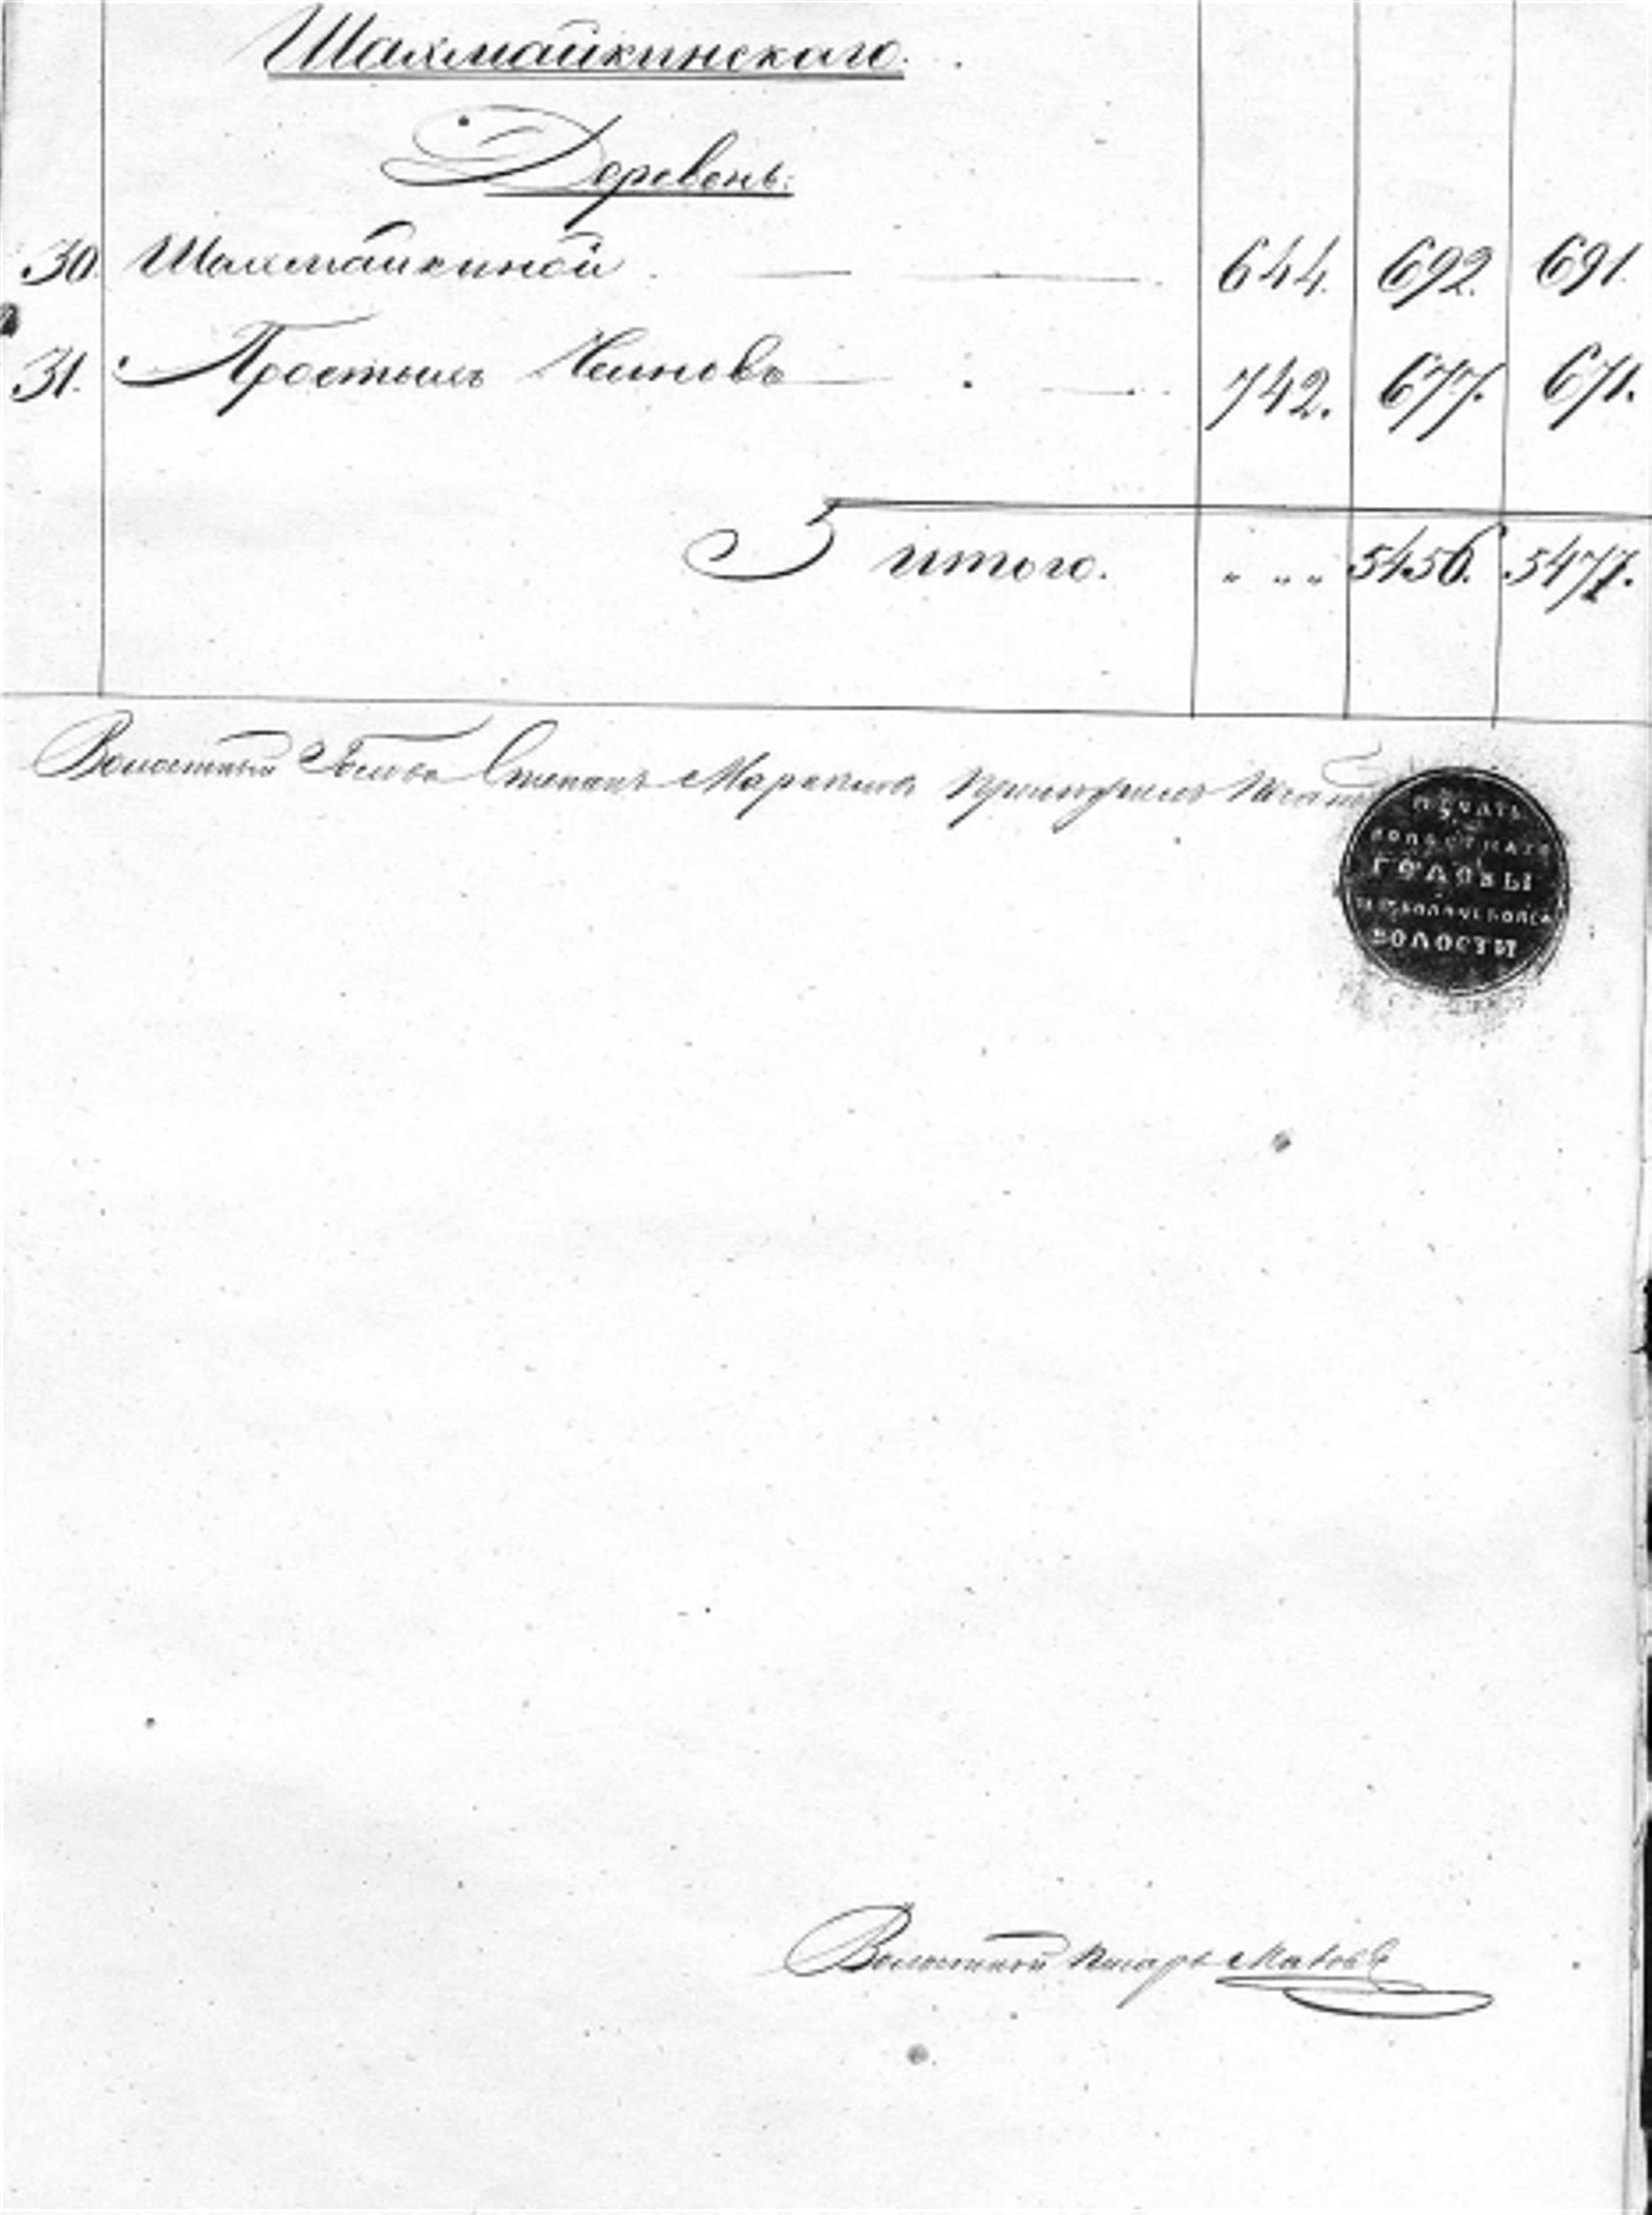 Шахмайкинскаго.
Деревень:
30. Шахмайкиной 644. 692. 691.
31. Простыхъ Челновъ 742. 677. 671.
итого. „ „ „ 5456. 5477.
Волостный Голова Степанъ
ПЕЧАТЬ
ВОЛОСТНАГО
ГОЛОВЫ
ВОЛОСТИ
Волостной писарь